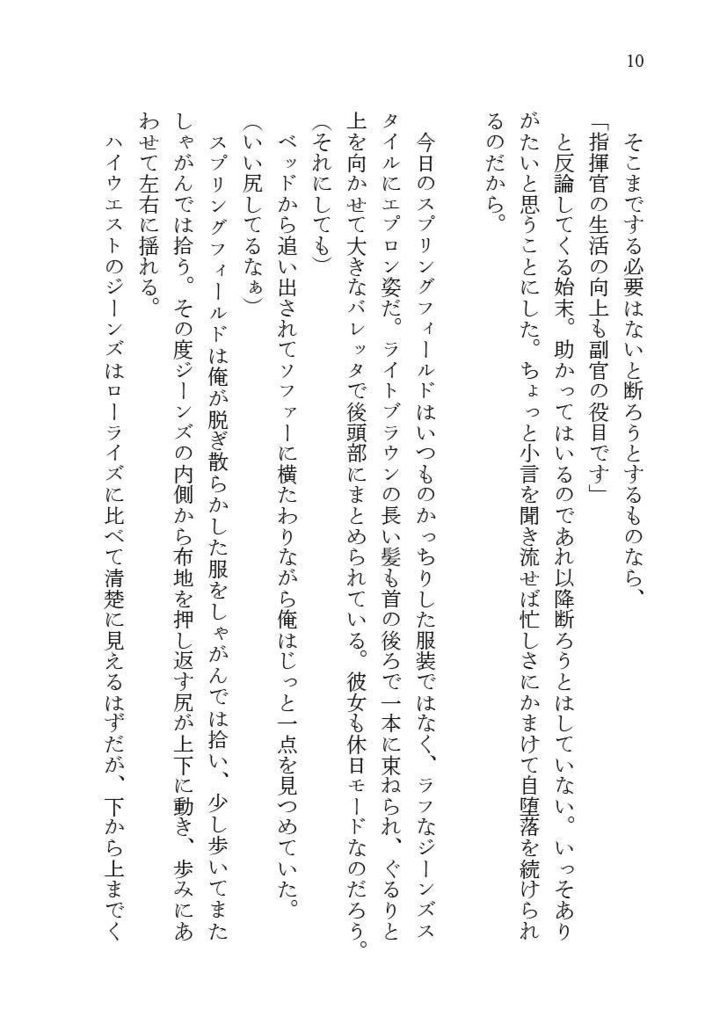 10
そこまでする必要はないと断ろうとするものなら、
「指揮官の生活の向上も副官の役目です」
と反論してくる始末。助かってはいるのであれ以降断ろうとはしていない。いっそあり
がたいと思うことにした。ちょっと小言を聞き流せば忙しさにかまけて自堕落を続けられ
るのだから。
今日のスプリングフィールドはいつものかっちりした服装ではなく、ラフなジーンズス
タイルにエプロン姿だ。ライトブラウンの長い髪も首の後ろで一本に束ねられ、ぐるりと
上を向かせて大きなバレッタで後頭部にまとめられている。彼女も休日モードなのだろう。
(それにしても)
ベッドから追い出されてソファーに横たわりながら俺はじっと一点を見つめていた。
(いい尻してるなぁ)
スプリングフィールドは俺が脱ぎ散らかした服をしゃがんでは拾い、少し歩いてまた
しゃがんでは拾う。その度ジーンズの内側から布地を押し返す尻が上下に動き、歩みにあ
わせて左右に揺れる。
ハイウエストのジーンズはローライズに比べて清楚に見えるはずだが、下から上までく